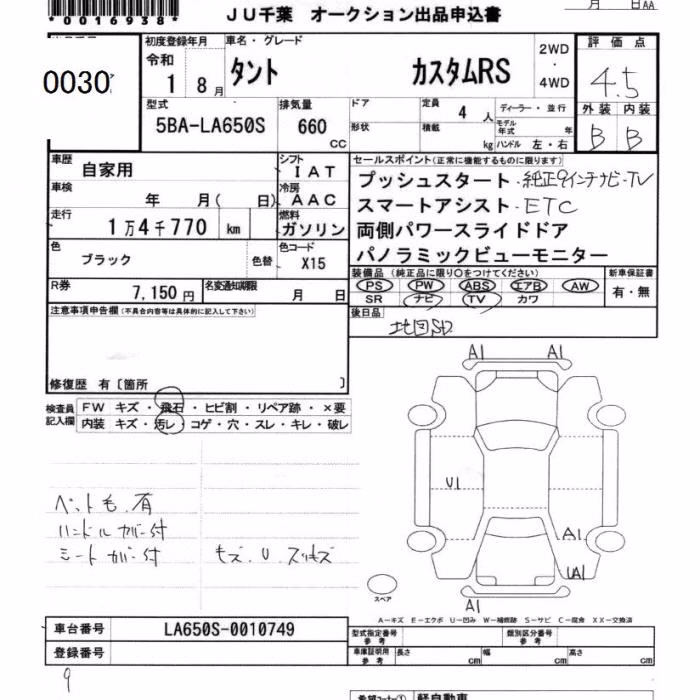 *0016938*
JU千葉 オークション出品申込書
月 日AA
0030
初度登録年月
令和
1 8月
車名・グレード
タント カスタムRS
2WD
・
4WD
評価点
4.5
外装 内装
B B
型式
5BA-LA650S
排気量
660
CC
ドア
形状
定員
4 人
積載
kg
ディーラー・並行
モデル年式 年
ハンドル 左・右
車歴
自家用
シフト
IAT
車検
年 月( 日)
冷房
AAC
走行
1万4千770 km
燃料
ガソリン
色
ブラック
色替
色コード
X15
R券
7,150円
名変通知期限
月 日
セールスポイント(正常に機能するものに限ります)
プッシュスタート・純正9インチナビ・TV
スマートアシスト・ETC
両側パワースライドドア
パノラミックビューモニター
装備品(純正品に限り○をつけてください)
PS PW ABS エアB AW
SR ナビ TV カワ
新車保証書
有・無
後日品
地図SD
注意事項申告欄(不具合内容等は具体的に記入して下さい)
修復歴 有〔箇所 〕
検査員
記入欄
FW キズ・飛石・ヒビ割・リペア跡・×要
内装 キズ・汚レ・コゲ・穴・スレ・キレ・破レ
ペット毛有
ハンドルカバー付
シートカバー付
モズ.U.スリキズ
A1 A1
U1
A1
UA1
A1
スペア
A-キズ E-エクボ U-凹み W-補修跡 S-サビ C-腐食 XX-交換済
車台番号
LA650S-0010749
登録番号
型式指定番号
参考
類別区分番号
参考
車庫証明用
参考
長さ cm
幅 cm
高さ cm
9
希望コーナー①
軽自動車